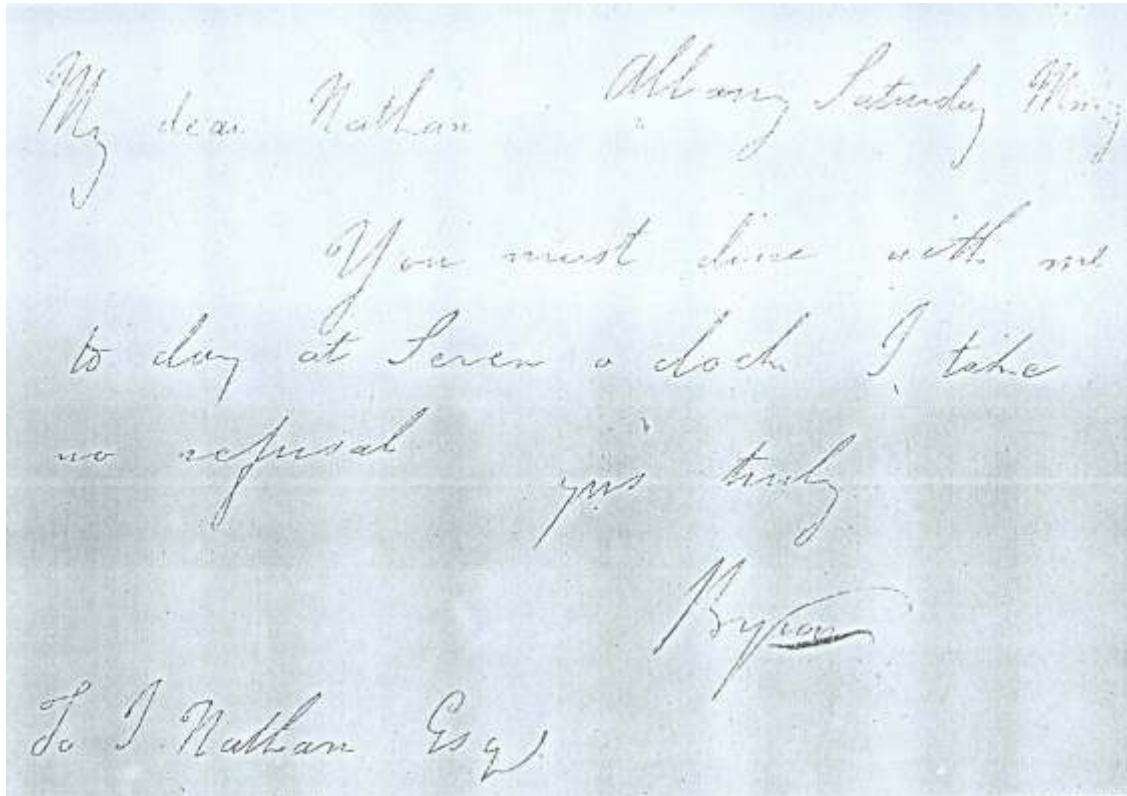 My dear Nathan Albany Saturday Mng
You must dine with me
to day at Seven o clock I take
no refusal
yrs truly
Byron
To I Nathan Esq.